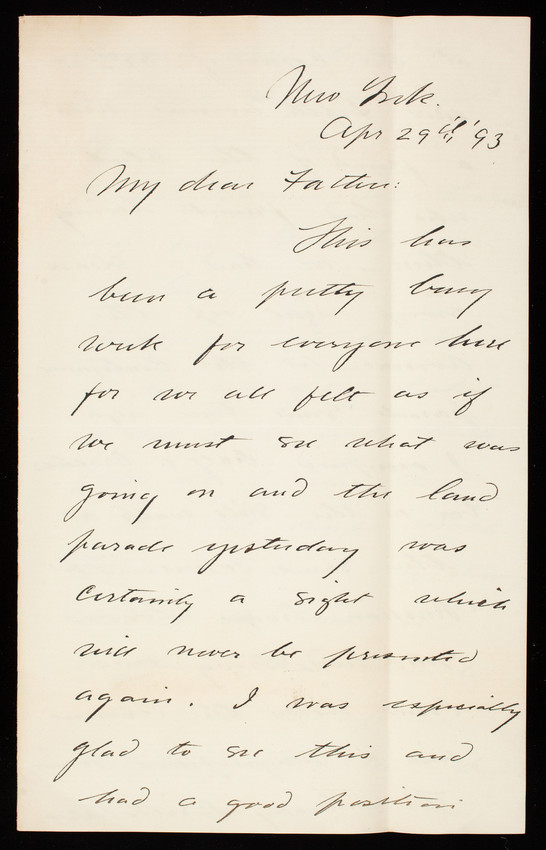 New York.
Apr 29th '93
My dear Father:
This has
been a pretty busy
week for everyone here
for we all felt as if
we must see what was
going on and the land
parade yesterday was
certainly a sight which
will never be presented
again. I was especially
glad to see this and
had a good position